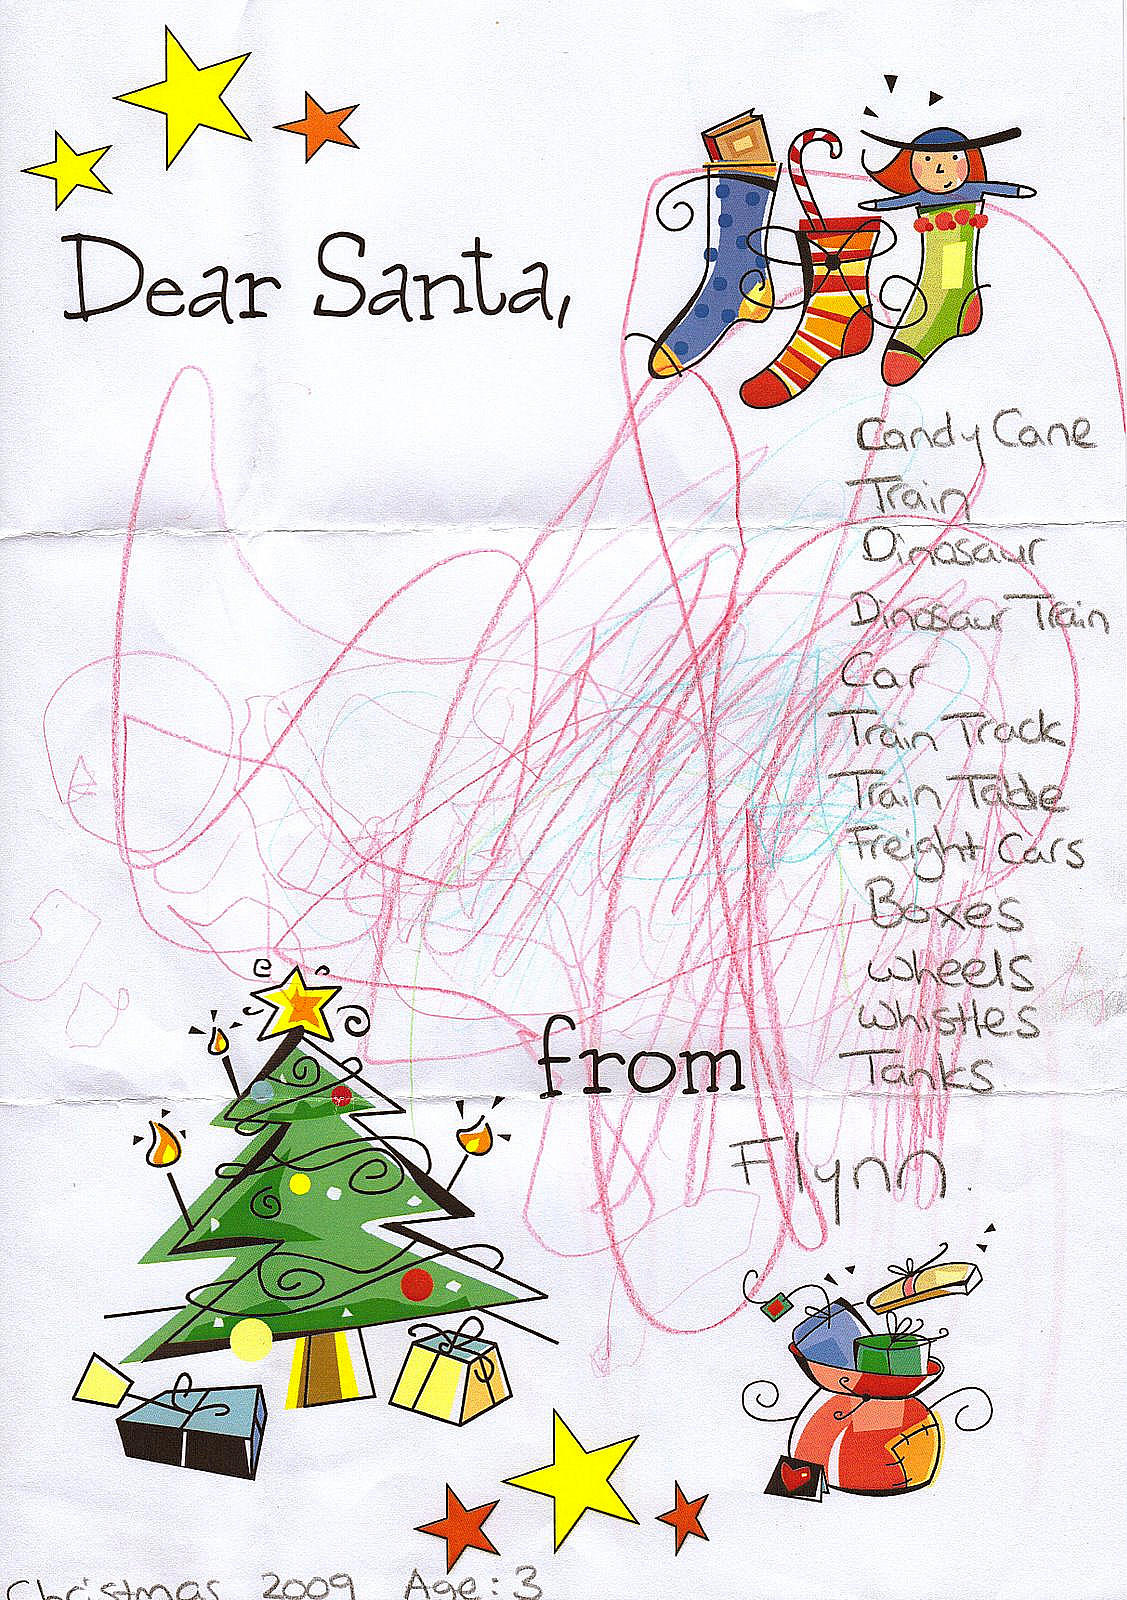 Dear Santa,
Candy Cane
Train
Dinosaur
Dinosaur Train
Car
Train Track
Train Table
Freight Cars
Boxes
Wheels
Whistles
Tanks
from
Flynn
Christmas 2009 Age: 3